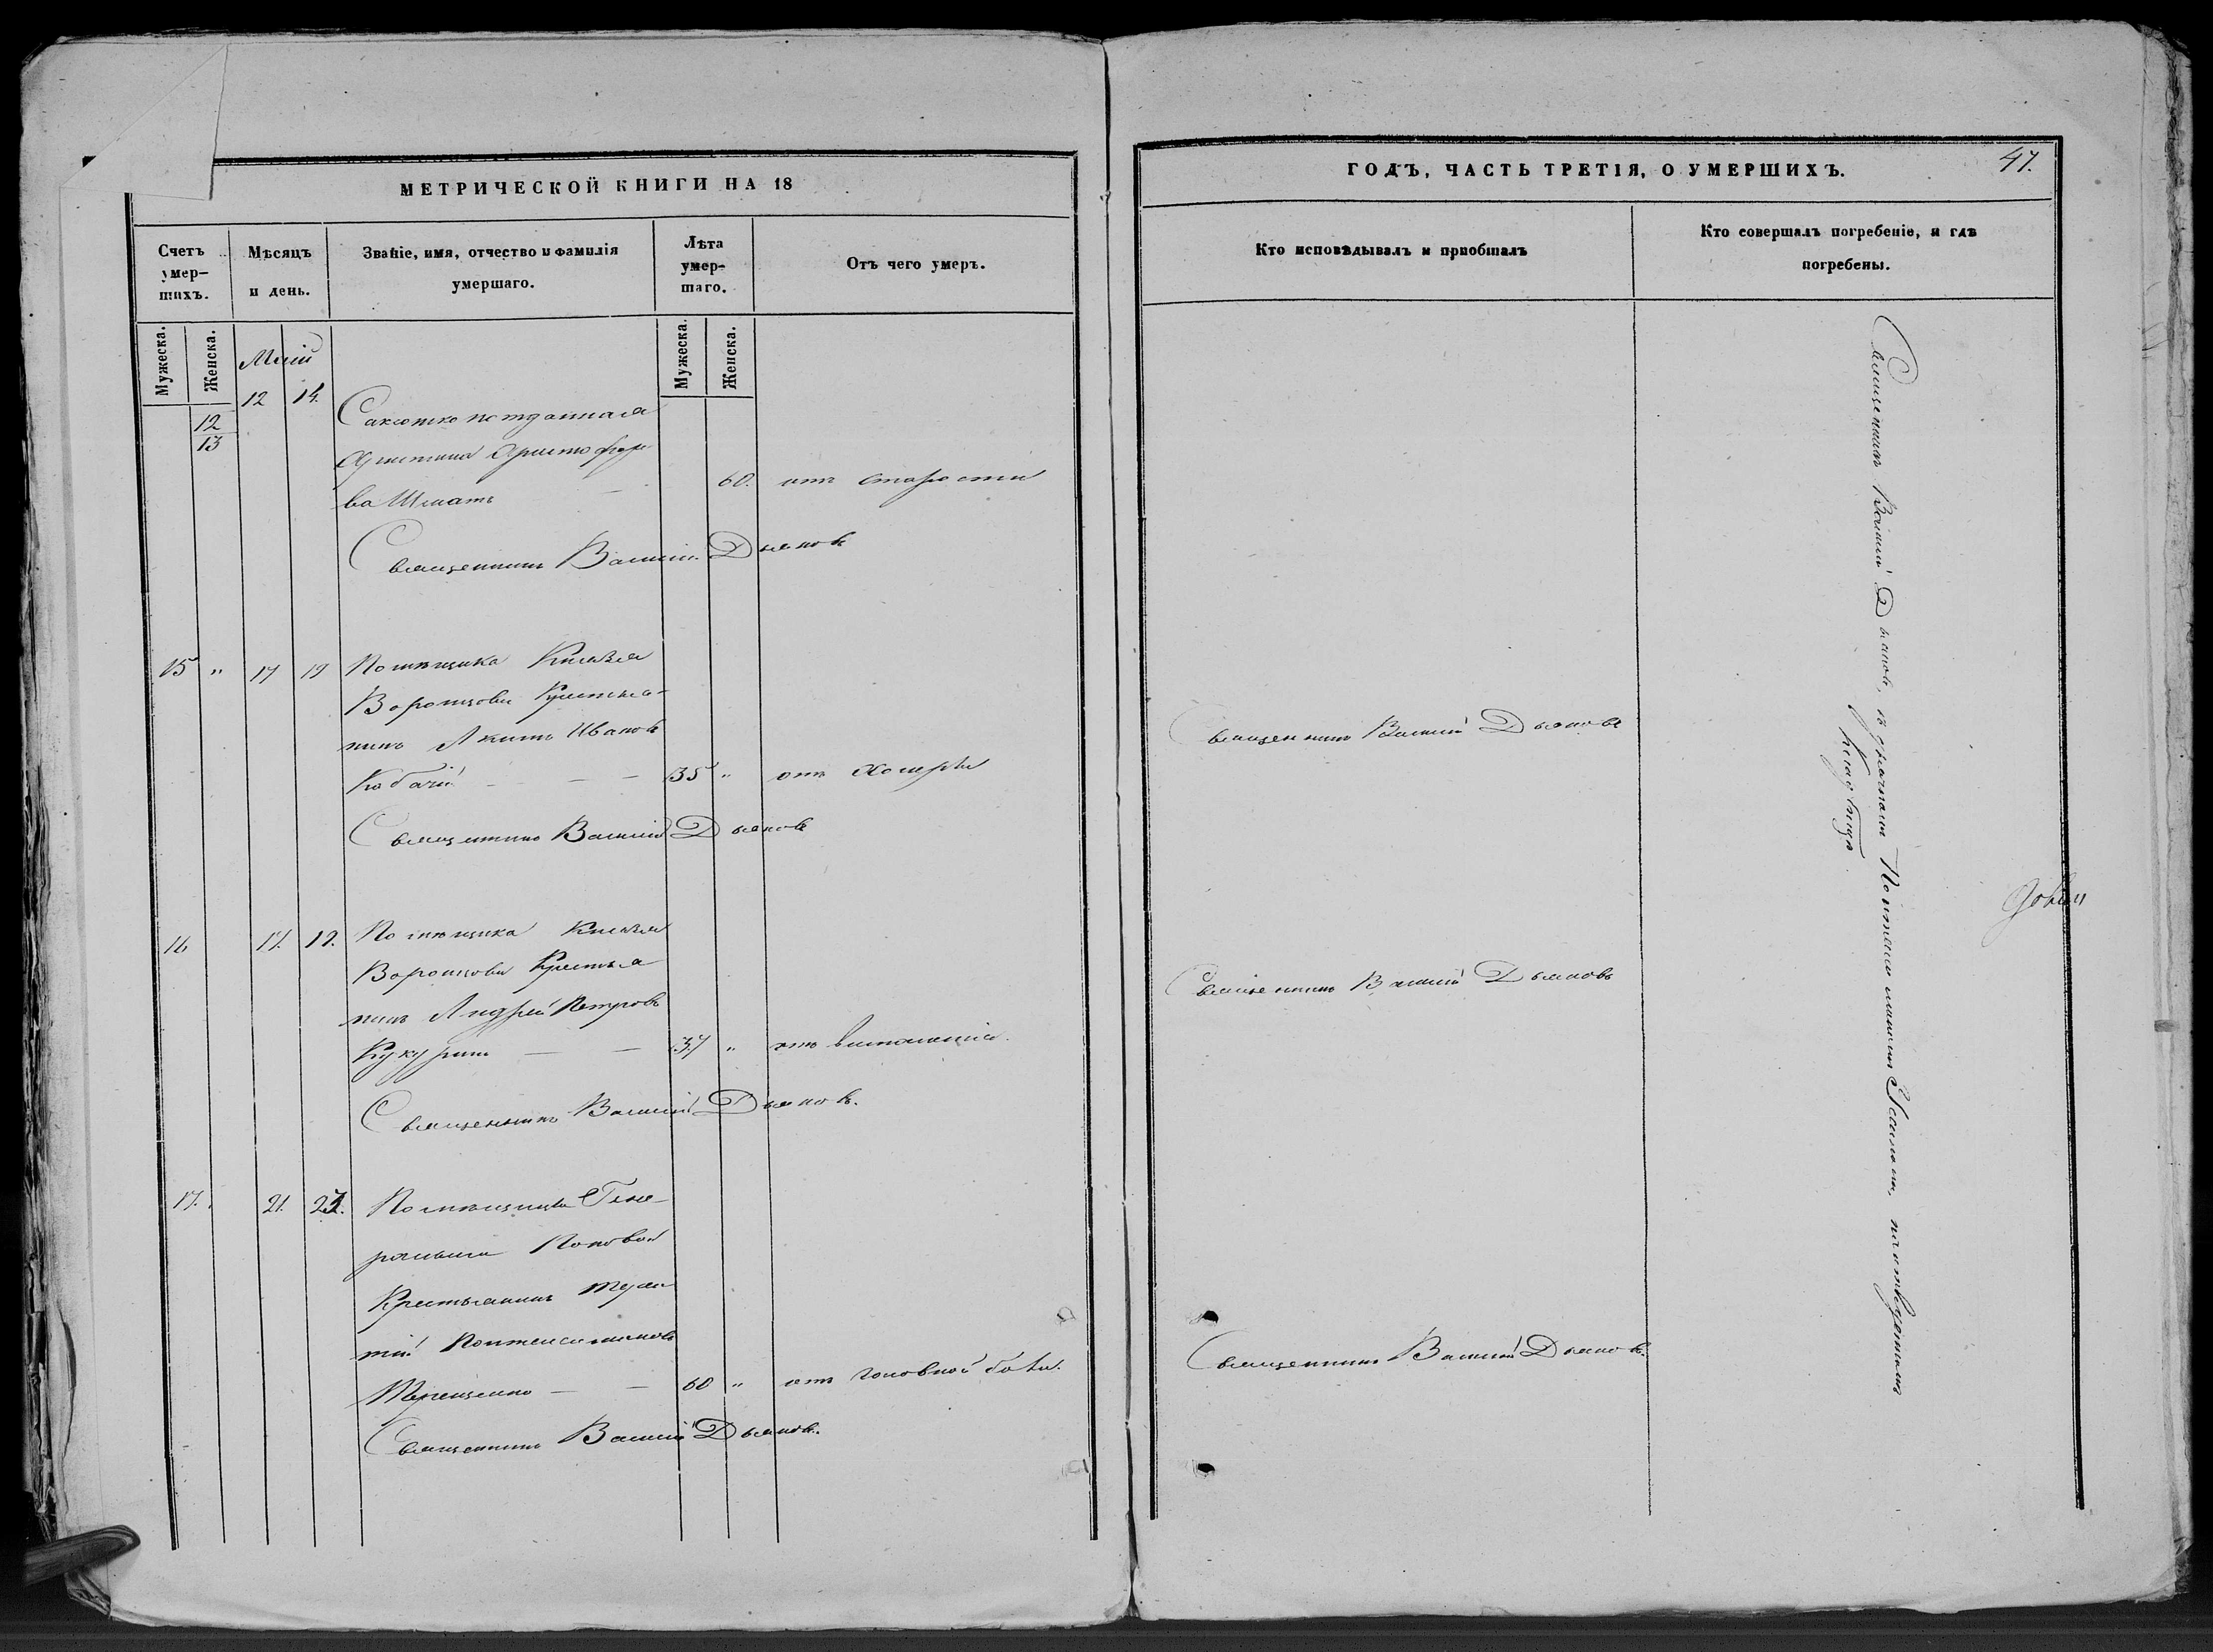 МЕТРИЧЕСКОЙ КНИГИ НА 18
Счетъ умер-шихъ.
Мѣсяцъ и день.
Званіе, имя, отчество и фамилія умершаго.
Лѣта умер-шаго.
Отъ чего умеръ.
Мужеска.
Женска.
Маій
Мужеска.
Женска.
12 14.
12
13
Саксонко подданная
Христина Христофоро
ва Шматъ —
60. отъ старости
Священникъ Василій Дьяковъ
15 " 17 19 Помѣщика Князя
Воронцова Крестья-
нинъ Якимъ Ивановъ
Кобачій — — — 35 " отъ Холеры
Священникъ Василій Дьяковъ
16 17. 19. Помѣщика Князя
Воронцова Крестья
нинъ Андрей Петровъ
Кукурика — — 37 " отъ воспаленія.
Священникъ Василій Дьяковъ.
17. 21. Помѣщицы Гене-
ральши Поповой
Крестьянинъ
Пантелеимоновъ
Терещенко — — 60 " отъ головной боли.
Священникъ Василій Дьяковъ.
ГОДЪ, ЧАСТЬ ТРЕТІЯ, О УМЕРШИХЪ.
47.
Кто исповѣдывалъ и пріобщалъ
Кто совершалъ погребеніе, и гдѣ погребены.
Священникъ Василій Дьяковъ
Священникъ Василій Дьяковъ
Священникъ Василій Дьяковъ.
Священникъ Василій Дьяковъ, съ
кладбищѣ